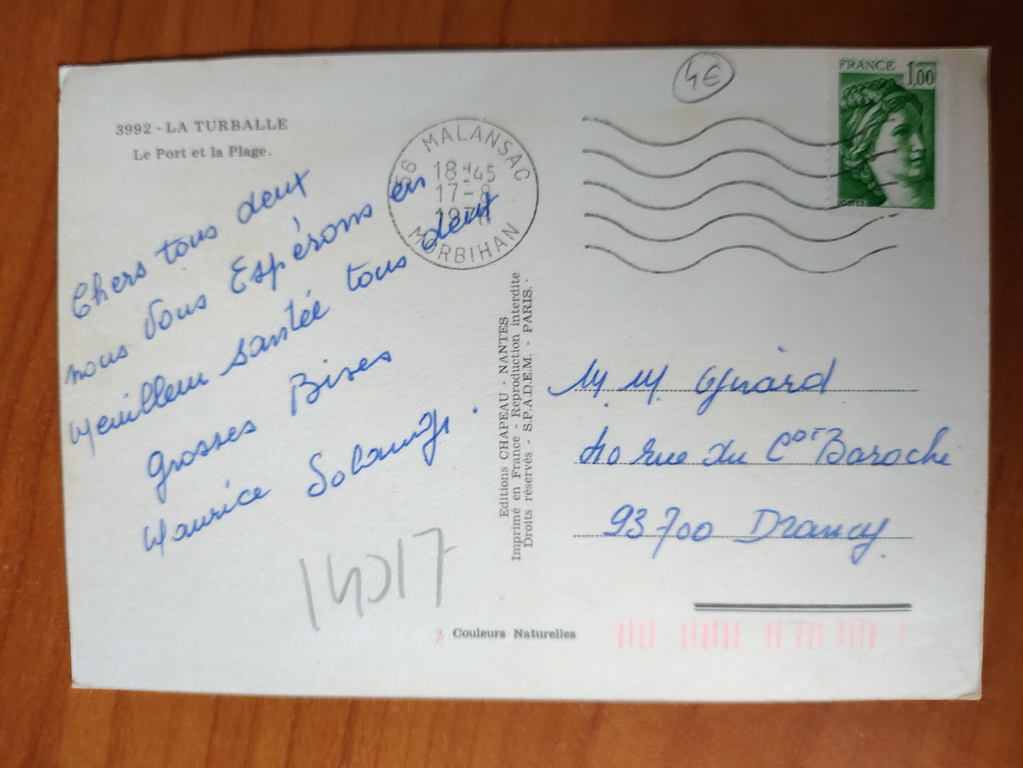 3992 - LA TURBALLE
Le Port et la Plage.
Chers tous deux
nous Vous Espérons en
Meilleur Santée tous deux
grosses Bises
Maurice Solange.
56 MALANSAC
18H45
17-8
MORBIHAN
4€
FRANCE 1,00
POSTES
Editions CHAPEAU - NANTES
Imprimé en France - Reproduction interdite
Droits réservés - S.P.A.D.E.M. - PARIS.
M. M
rue du Cdt Baroche
93700 Drancy
2 Couleurs Naturelles